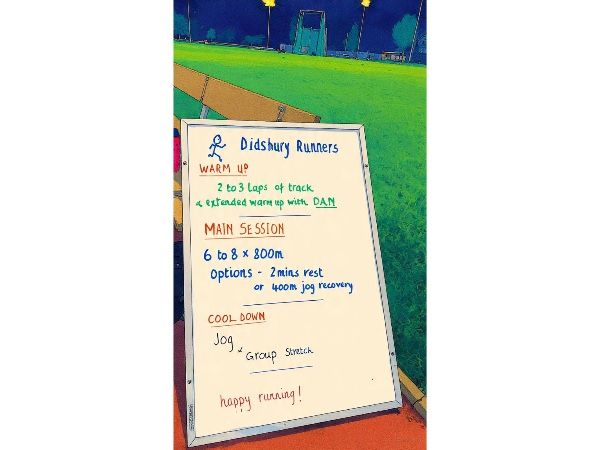 Didsbury Runners
WARM UP
2 to 3 laps of track
& extended warm up with DAN
MAIN SESSION
6 to 8 x 800m
options - 2mins rest
or 400m jog recovery
COOL DOWN
Jog
& Group Stretch
happy running!